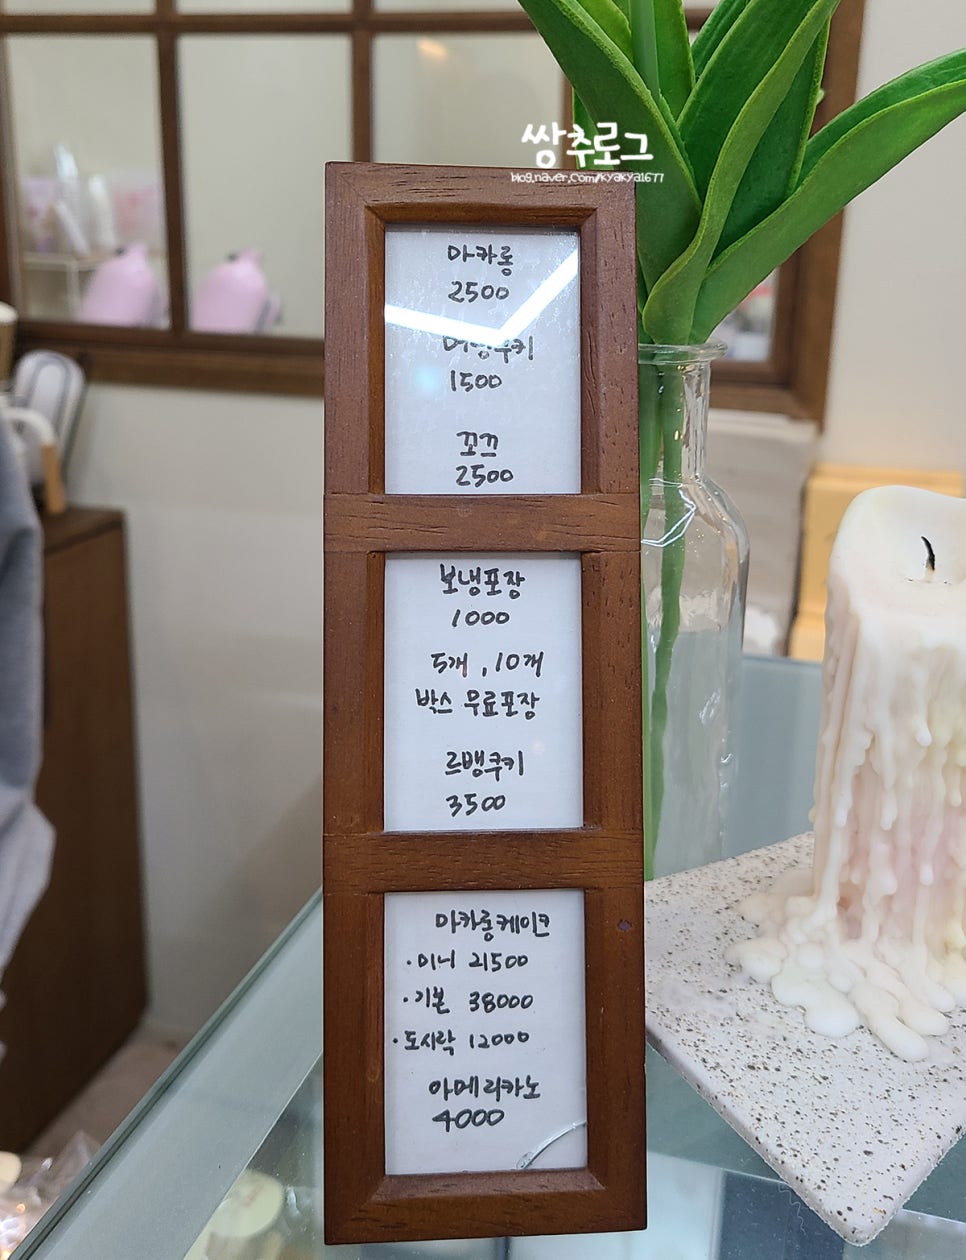 쌍추로그
blog.naver.com/kyakya1677
마카롱
2500
머랭쿠키
1500
꼬끄
2500
보냉포장
1000
5개, 10개
박스 무료포장
르뱅쿠키
3500
마카롱케이크
·미니 21500
·기본 38000
·도시락 12000
아메리카노
4000